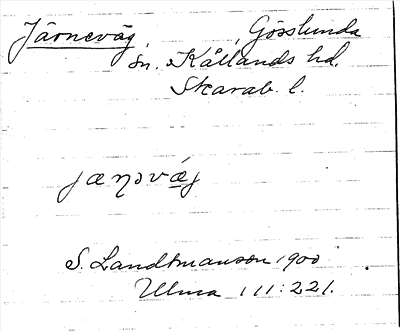 Järneväg, Gösslunda
sn. Kållands hd.
Skarab. l.
jæṇəvæ̨j
S. Landtmanson 1900
Ulma 111:221.